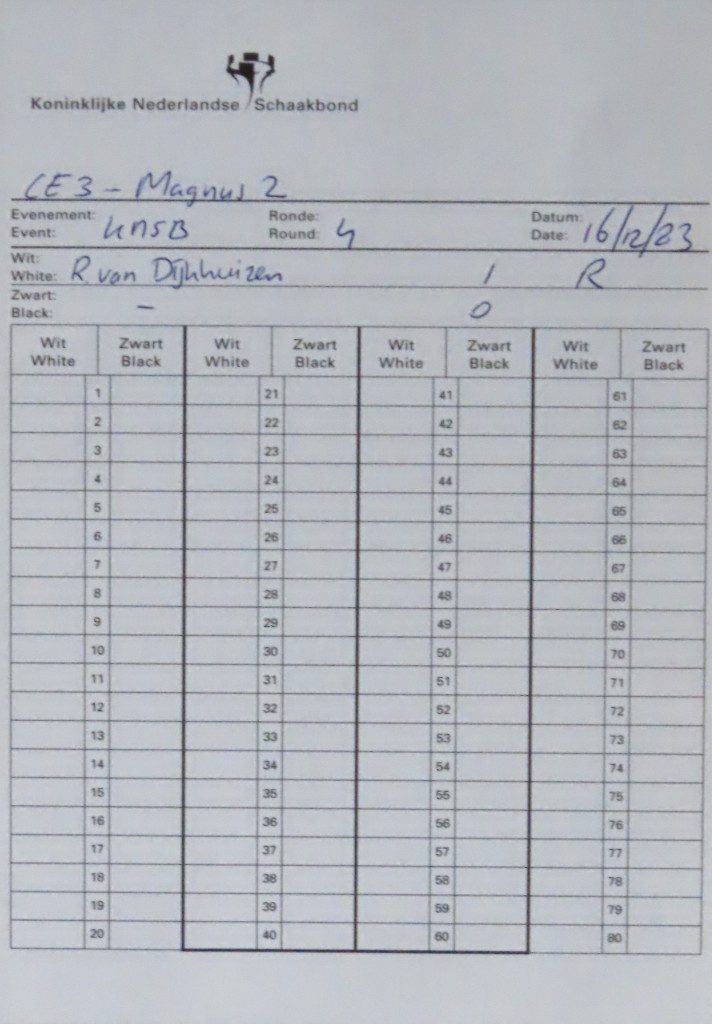 Koninklijke Nederlandse Schaakbond
CE3 - Magnus 2
Evenement: Ronde: Datum:
Event: KNSB Round: 4 Date: 16/12/23
Wit:
White: R. van Dijkhuizen 1 R
Zwart:
Black: - 0
Wit Zwart Wit Zwart Wit Zwart Wit Zwart
White Black White Black White Black White Black
1 21 41 61
2 22 42 62
3 23 43 63
4 24 44 64
5 25 45 65
6 26 46 66
7 27 47 67
8 28 48 68
9 29 49 69
10 30 50 70
11 31 51 71
12 32 52 72
13 33 53 73
14 34 54 74
15 35 55 75
16 36 56 76
17 37 57 77
18 38 58 78
19 39 59 79
20 40 60 80